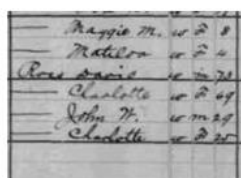 — Maggie M. w F 8
— Matilda w F 4
Ross David w m 73
— Charlotte w F 69
— John W. w m 29
— Charlotte w F 20